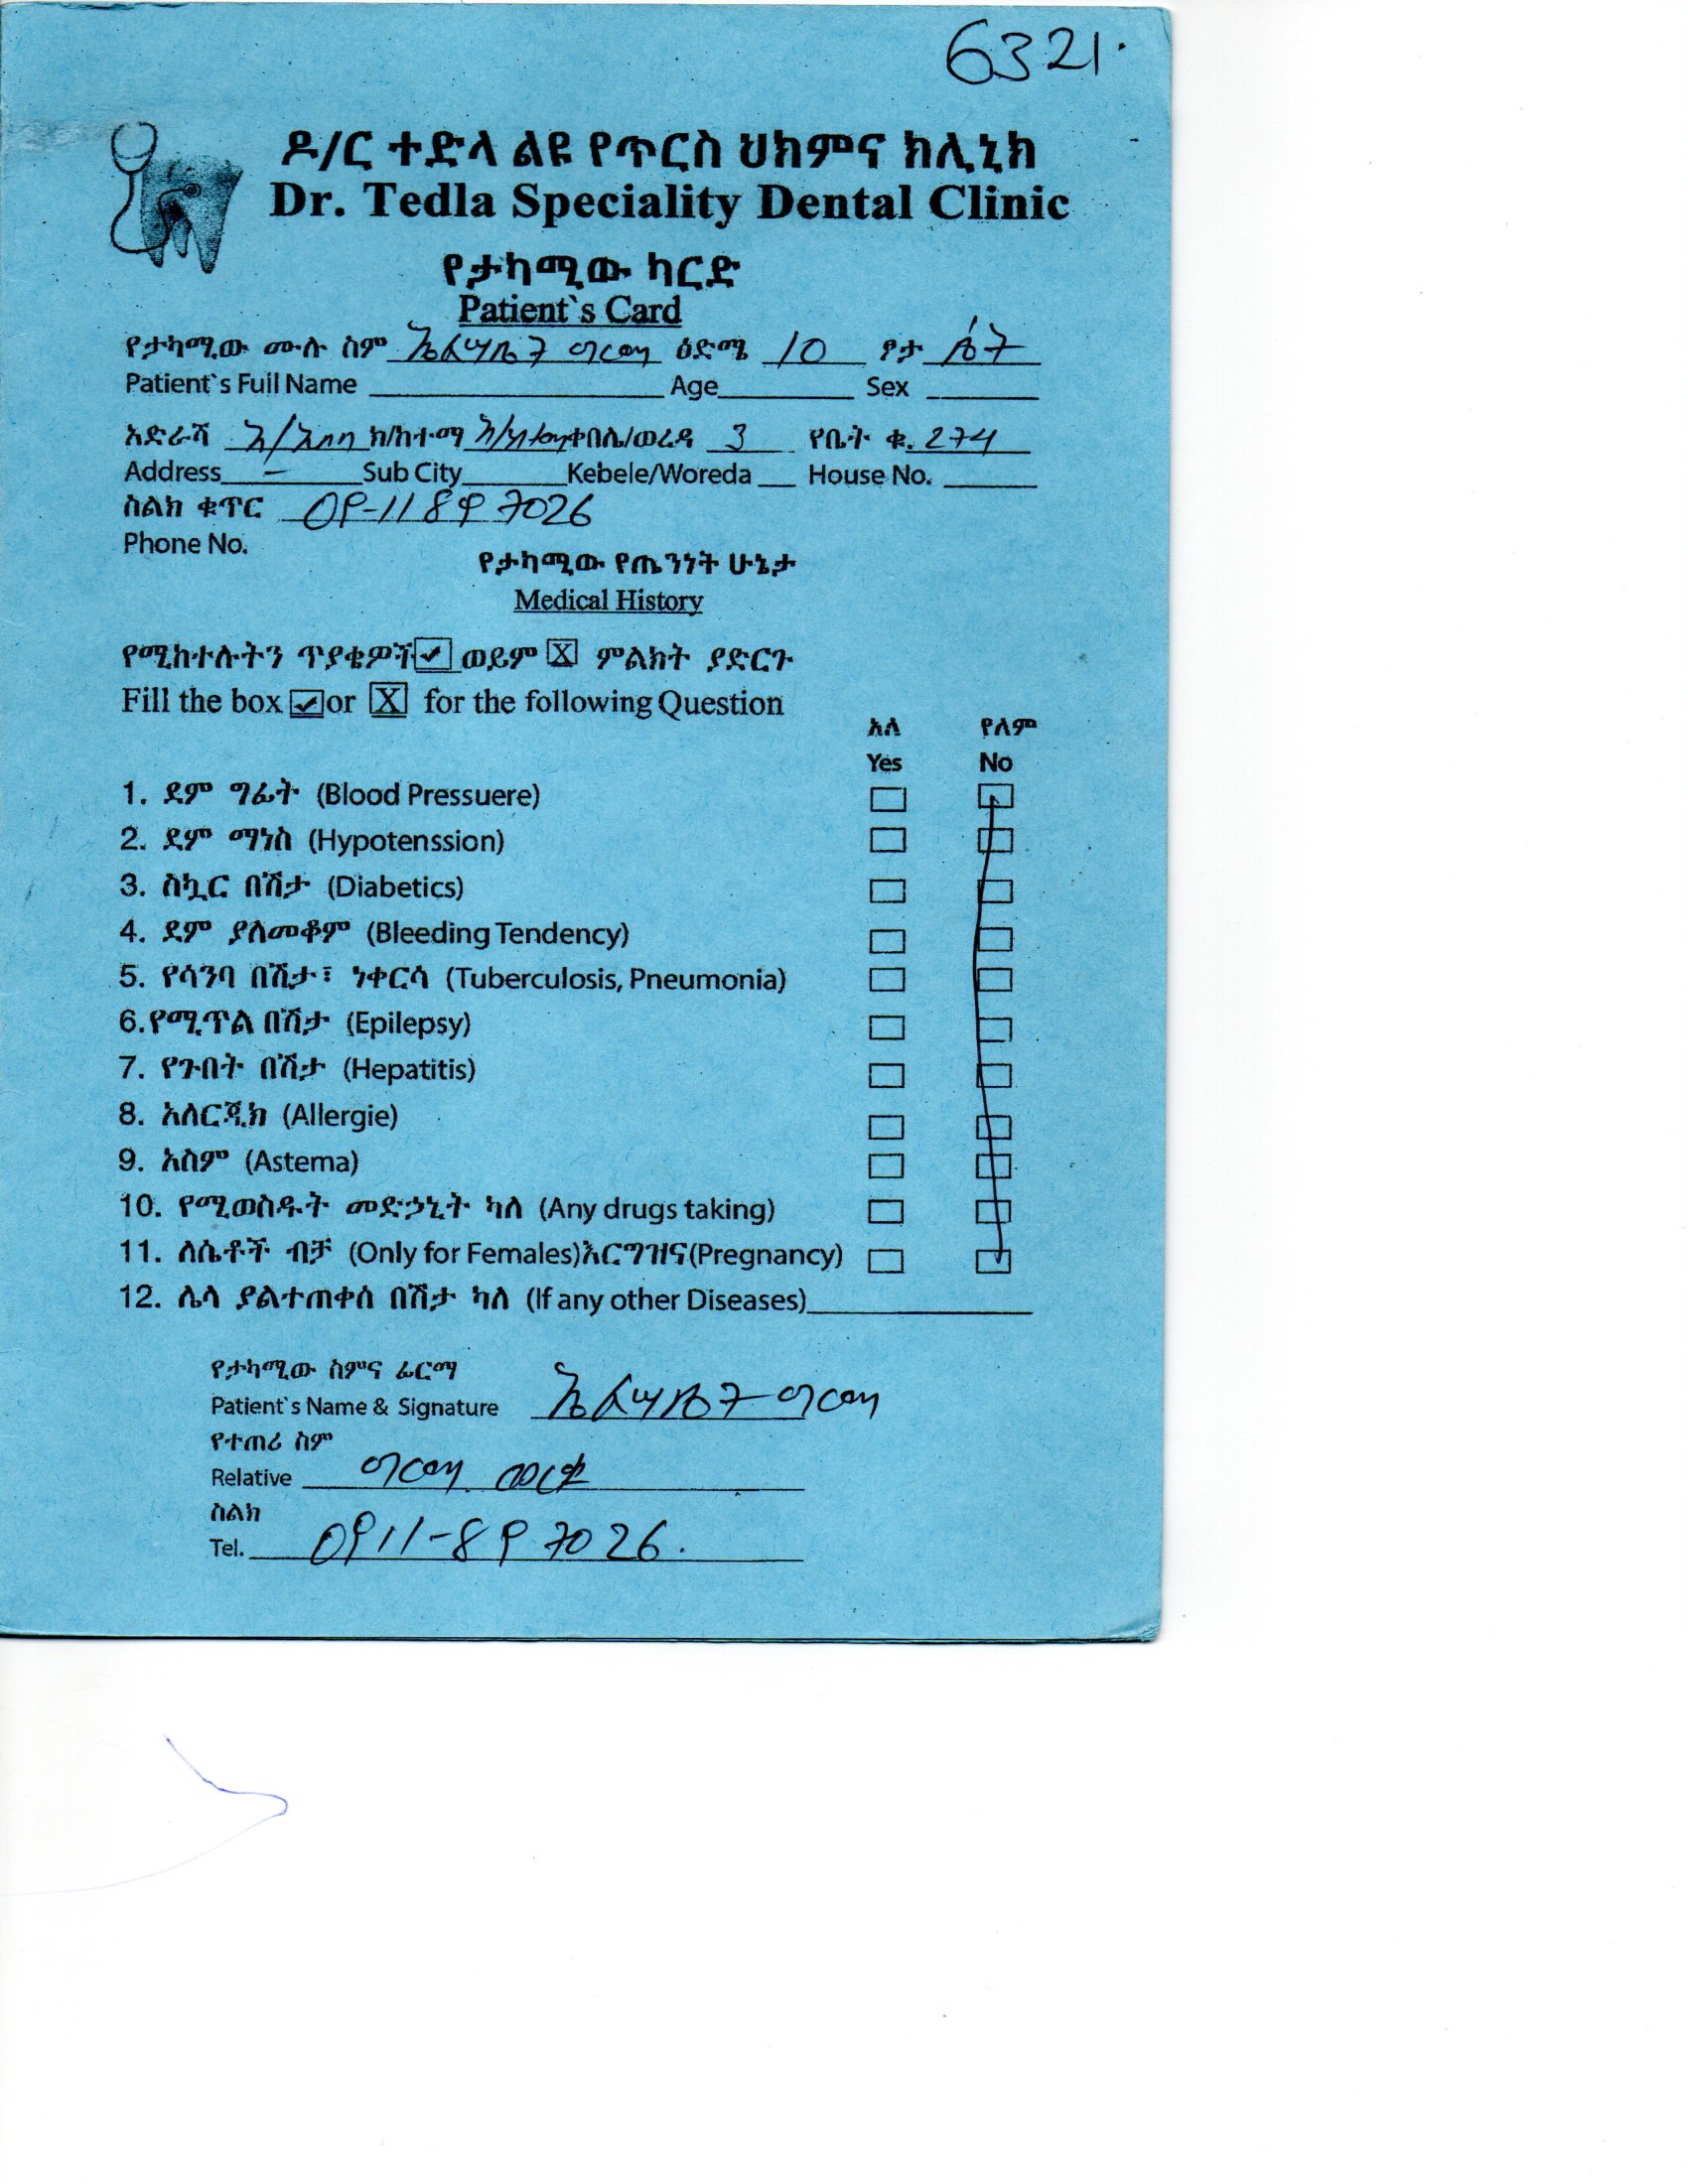 6321.
ዶ/ር ተድላ ልዩ የጥርስ ህክምና ክሊኒክ
Dr. Tedla Speciality Dental Clinic
የታካሚው ካርድ
Patient`s Card
የታካሚው ሙሉ ስም ዕድሜ 10 ፆታ ሴት
Patient`s Full Name Age Sex
አድራሻ አ/አበባ ክ/ከተማ ቀበሌ/ወረዳ 3 የቤት ቁ. 274
Address – Sub City Kebele/Woreda House No.
ስልክ ቁጥር 09-11897026
Phone No.
የታካሚው የጤንነት ሁኔታ
Medical History
የሚከተሉትን ጥያቄዎች ✓ ወይም X ምልክት ያድርጉ
Fill the box ✓ or X for the following Question
አለ የለም
Yes No
1. ደም ግፊት (Blood Pressuere)
2. ደም ማነስ (Hypotenssion)
3. ስኳር በሽታ (Diabetics)
4. ደም ያለመቆም (Bleeding Tendency)
5. የሳንባ በሽታ፣ ነቀርሳ (Tuberculosis, Pneumonia)
6.የሚጥል በሽታ (Epilepsy)
7. የጉበት በሽታ (Hepatitis)
8. አለርጂክ (Allergie)
9. አስም (Astema)
10. የሚወስዱት መድኃኒት ካለ (Any drugs taking)
11. ለሴቶች ብቻ (Only for Females)እርግዝና(Pregnancy)
12. ሌላ ያልተጠቀሰ በሽታ ካለ (If any other Diseases)
የታካሚው ስምና ፊርማ
Patient`s Name & Signature
የተጠሪ ስም
Relative
ስልክ
Tel. 0911-897026.